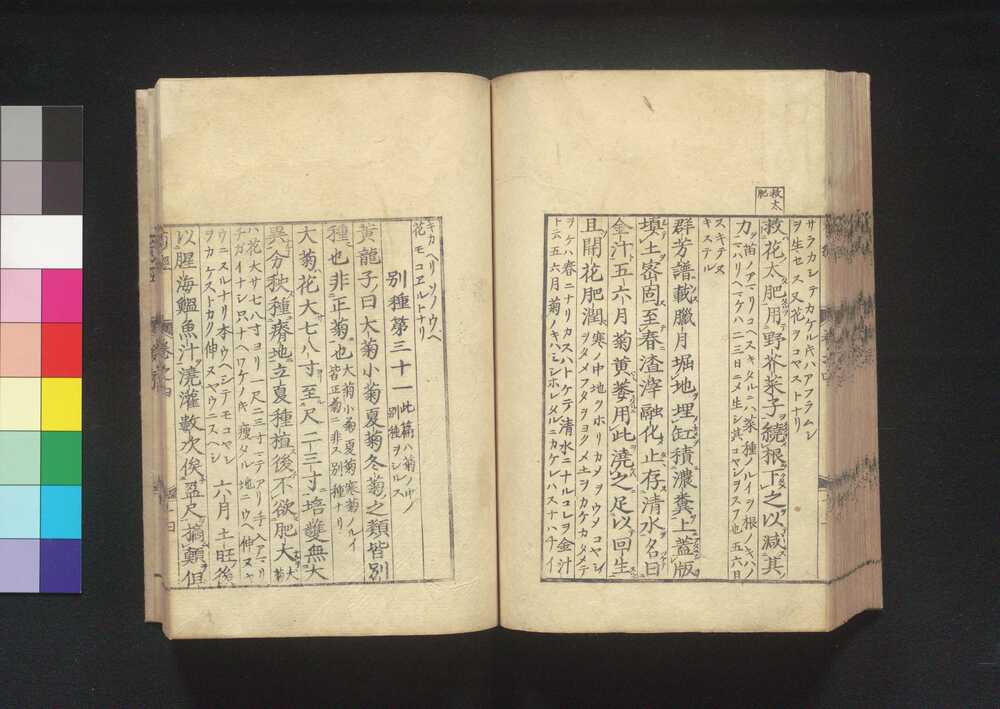 救太
肥
サラカシテカケル𪜈ハアブラムシ
ヲ生セス又花ヲコヤストナリ
救花太肥用野芥菜子繞根下之以減其
力
二三日ニメ生シ其コヤシヲスフ也五六日
スキテヌ
キステル
群芳譜載臘月堀地埋缸積濃糞上蓋版
填土密固至春渣滓融化止存清水名曰
金汁五六月菊黄萎用此澆之足以回生
且開花肥潤
寒ノ中地ヲホリカメヲウメコヤシ
ヲタメフタヲメ土ヲカケカタメテ
ヲケハ春ニナリカスハトケテ清水ニナルコレヲ金汁
ト云五六月菊ノキハミシホレタルニカケレハスナハチイ
キカヘリソノウヘ
花モコヱルトナリ
別種第三十一
此篇ハ菊ノ
別種ヲシルス
黄龍子曰大菊小菊夏菊冬菊之類皆別
種也非正菊也
大菊小菊夏菊寒菊ノルイ
皆正菊ニ非ス別種ナリ
大菊花大七八寸至尺二三寸培養無大
異分秧種瘠地立夏種植後不欲肥大
大菊
ハ花大サ七八寸ヨリ一尺二三寸マテアリ手入アマリ
チガイナシ只ナヘワケノキ瘦タル地ニウヘ伸
ウニスルナリ本ウヘシテモコヤシ
ヲカケストカク伸スヤウニスヘシ
六月土旺後
以腥海鰮魚汁澆灌數次俟盈尺摘顛但